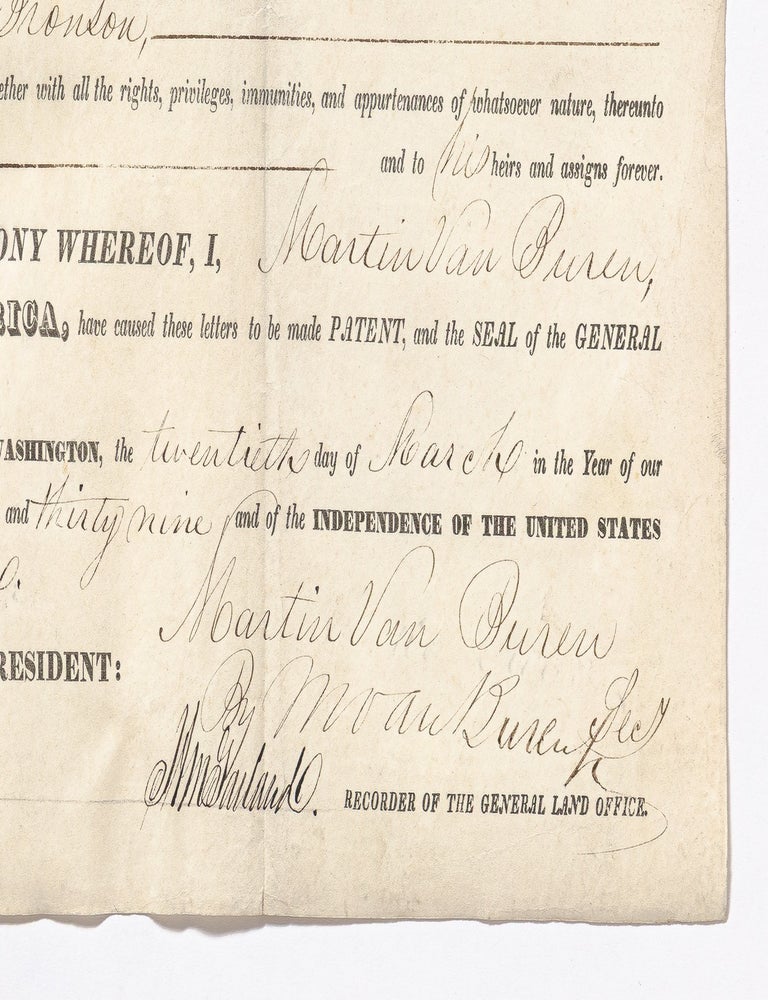 Bronson,
ether with all the rights, privileges, immunities, and appurtenances of whatsoever nature, thereunto
and to his heirs and assigns forever.
ONY WHEREOF, I, Martin Van Buren,
RICA, have caused these letters to be made PATENT, and the SEAL of the GENERAL
WASHINGTON, the twentieth day of March in the Year of our
and thirty nine and of the INDEPENDENCE OF THE UNITED STATES
Martin Van Buren
RESIDENT:
By M Van Buren Jr Secy
RECORDER OF THE GENERAL LAND OFFICE.